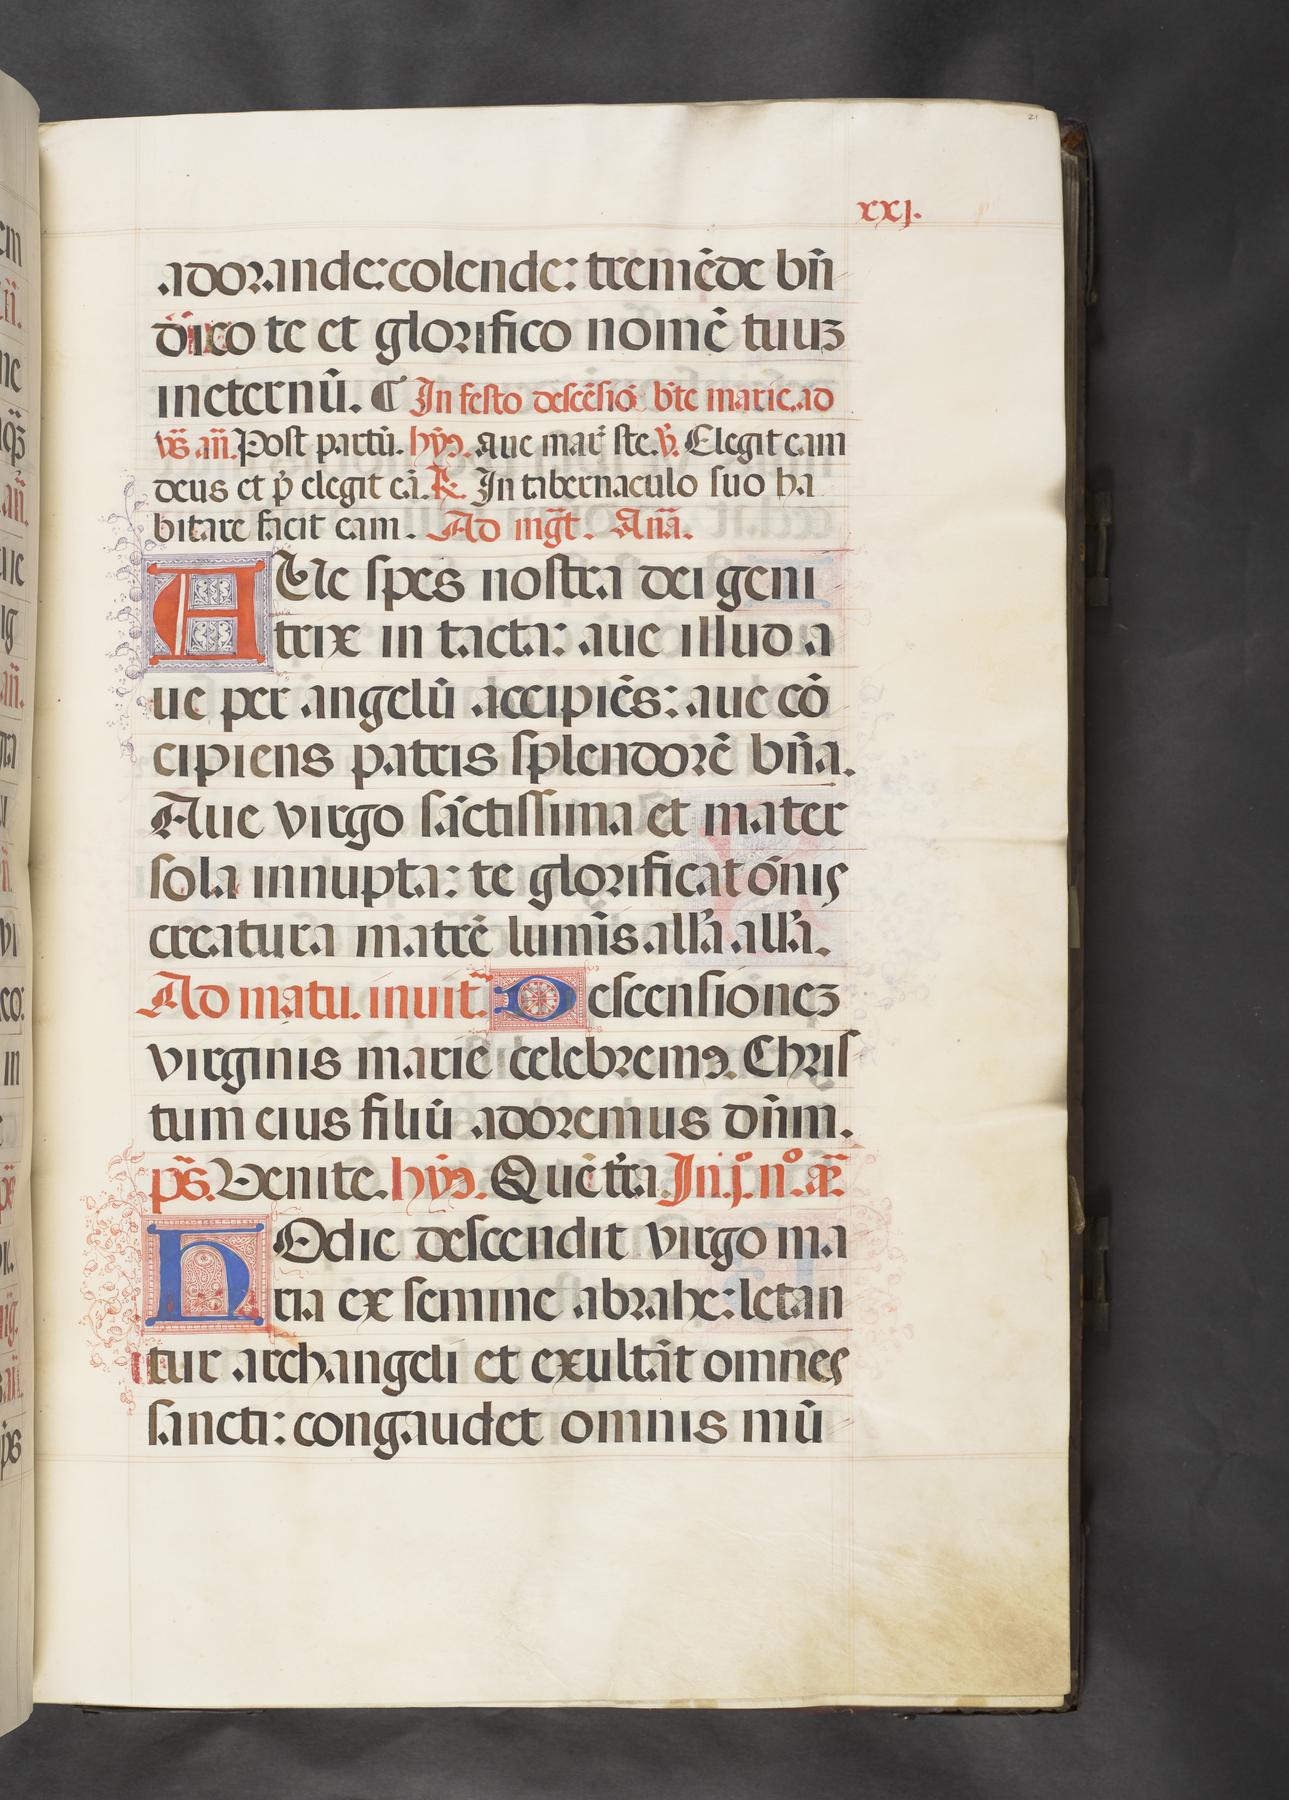 21
xxj.
adorande: colende: tremẽde bñ
dico te et glorifico nomẽ tuuʒ
ineternũ. ¶ In festo descẽsiõ bt̃e marie. ad
vs̃ añ. Post partũ. hyꝰ. aue mar̃ ste. ℣. Elegit eam
deus et p̃ elegit eã. ℟. In tabernaculo suo ha
bitare facit eam. Ad mg̃t. Anã.
AUe spes nostra dei geni
trix in tacta: aue illud a
ue per angelũ accipiẽs: aue cõ
cipiens patris splendorẽ bña.
Aue virgo sãctissima et mater
sola innupta: te glorificat õnis
creatura matrẽ lumĩs. all'a all'a.
Ad matu. inuit̃ Descensioneʒ
virginis marie celebremꝰ. Chris
tum eius filiũ adoremus dñm.
ps̃. Venite. hyꝰ. Quẽ tr̃ra In .j.º nº. añ.
hOdie descendit virgo ma
ria ex semine abrahe: letan
tur archangeli et exultãt omnes
sancti: congaudet omnis mũ